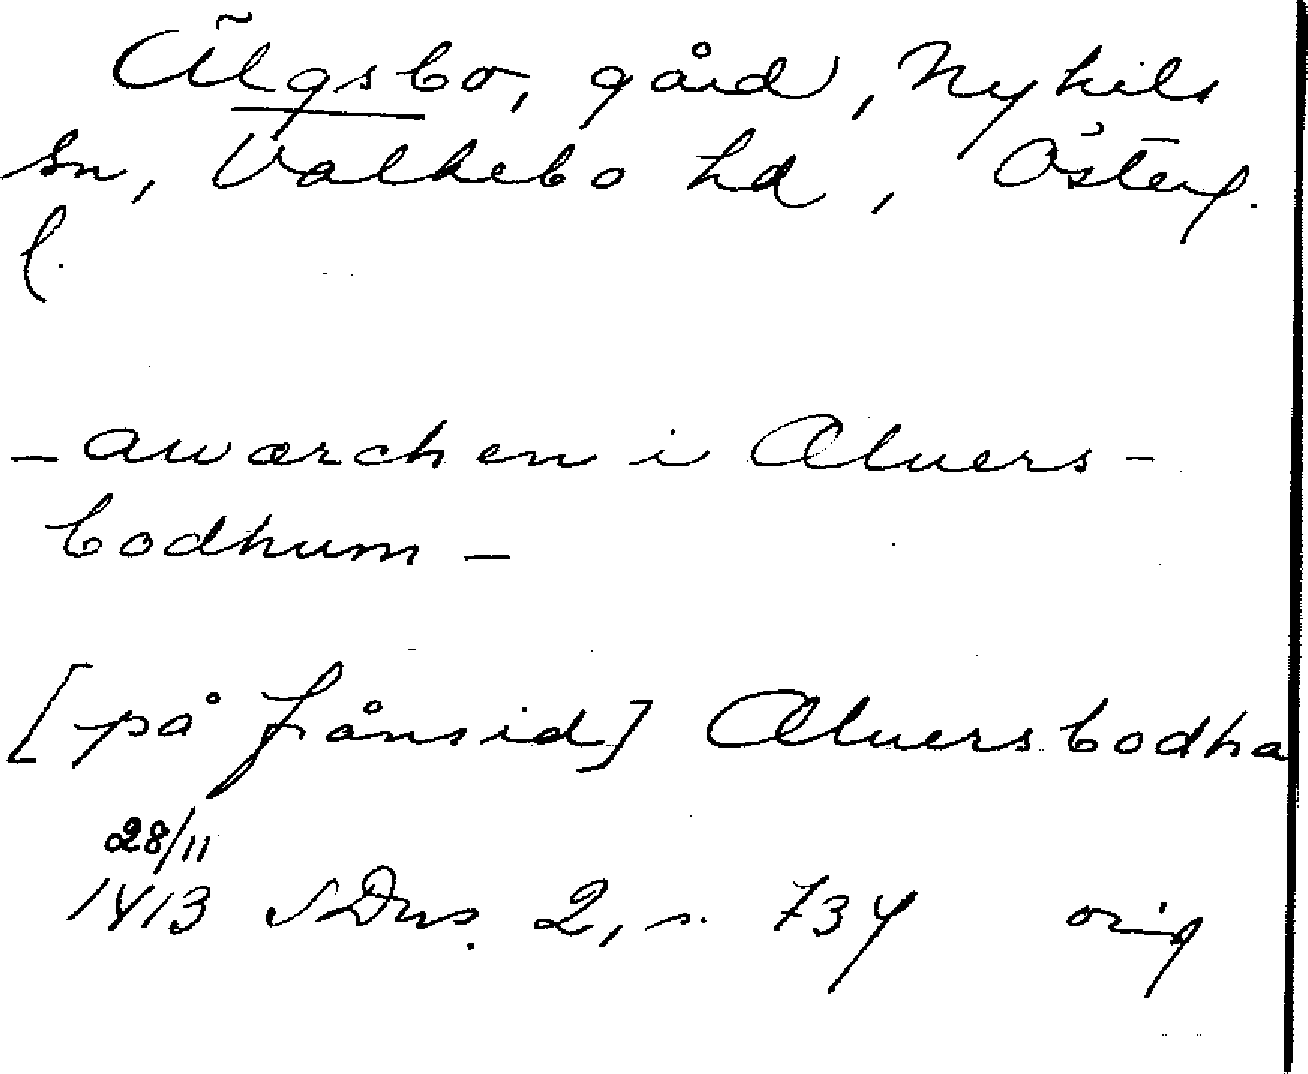 Älgsbo, gård, Nykils
sn, Valkebo hd, Österg.
l.
- awærchen i Æluers-
bodhum -
[på frånsid] Æluersbodha
28/11
1413 SDns. 2, s. 734 orig